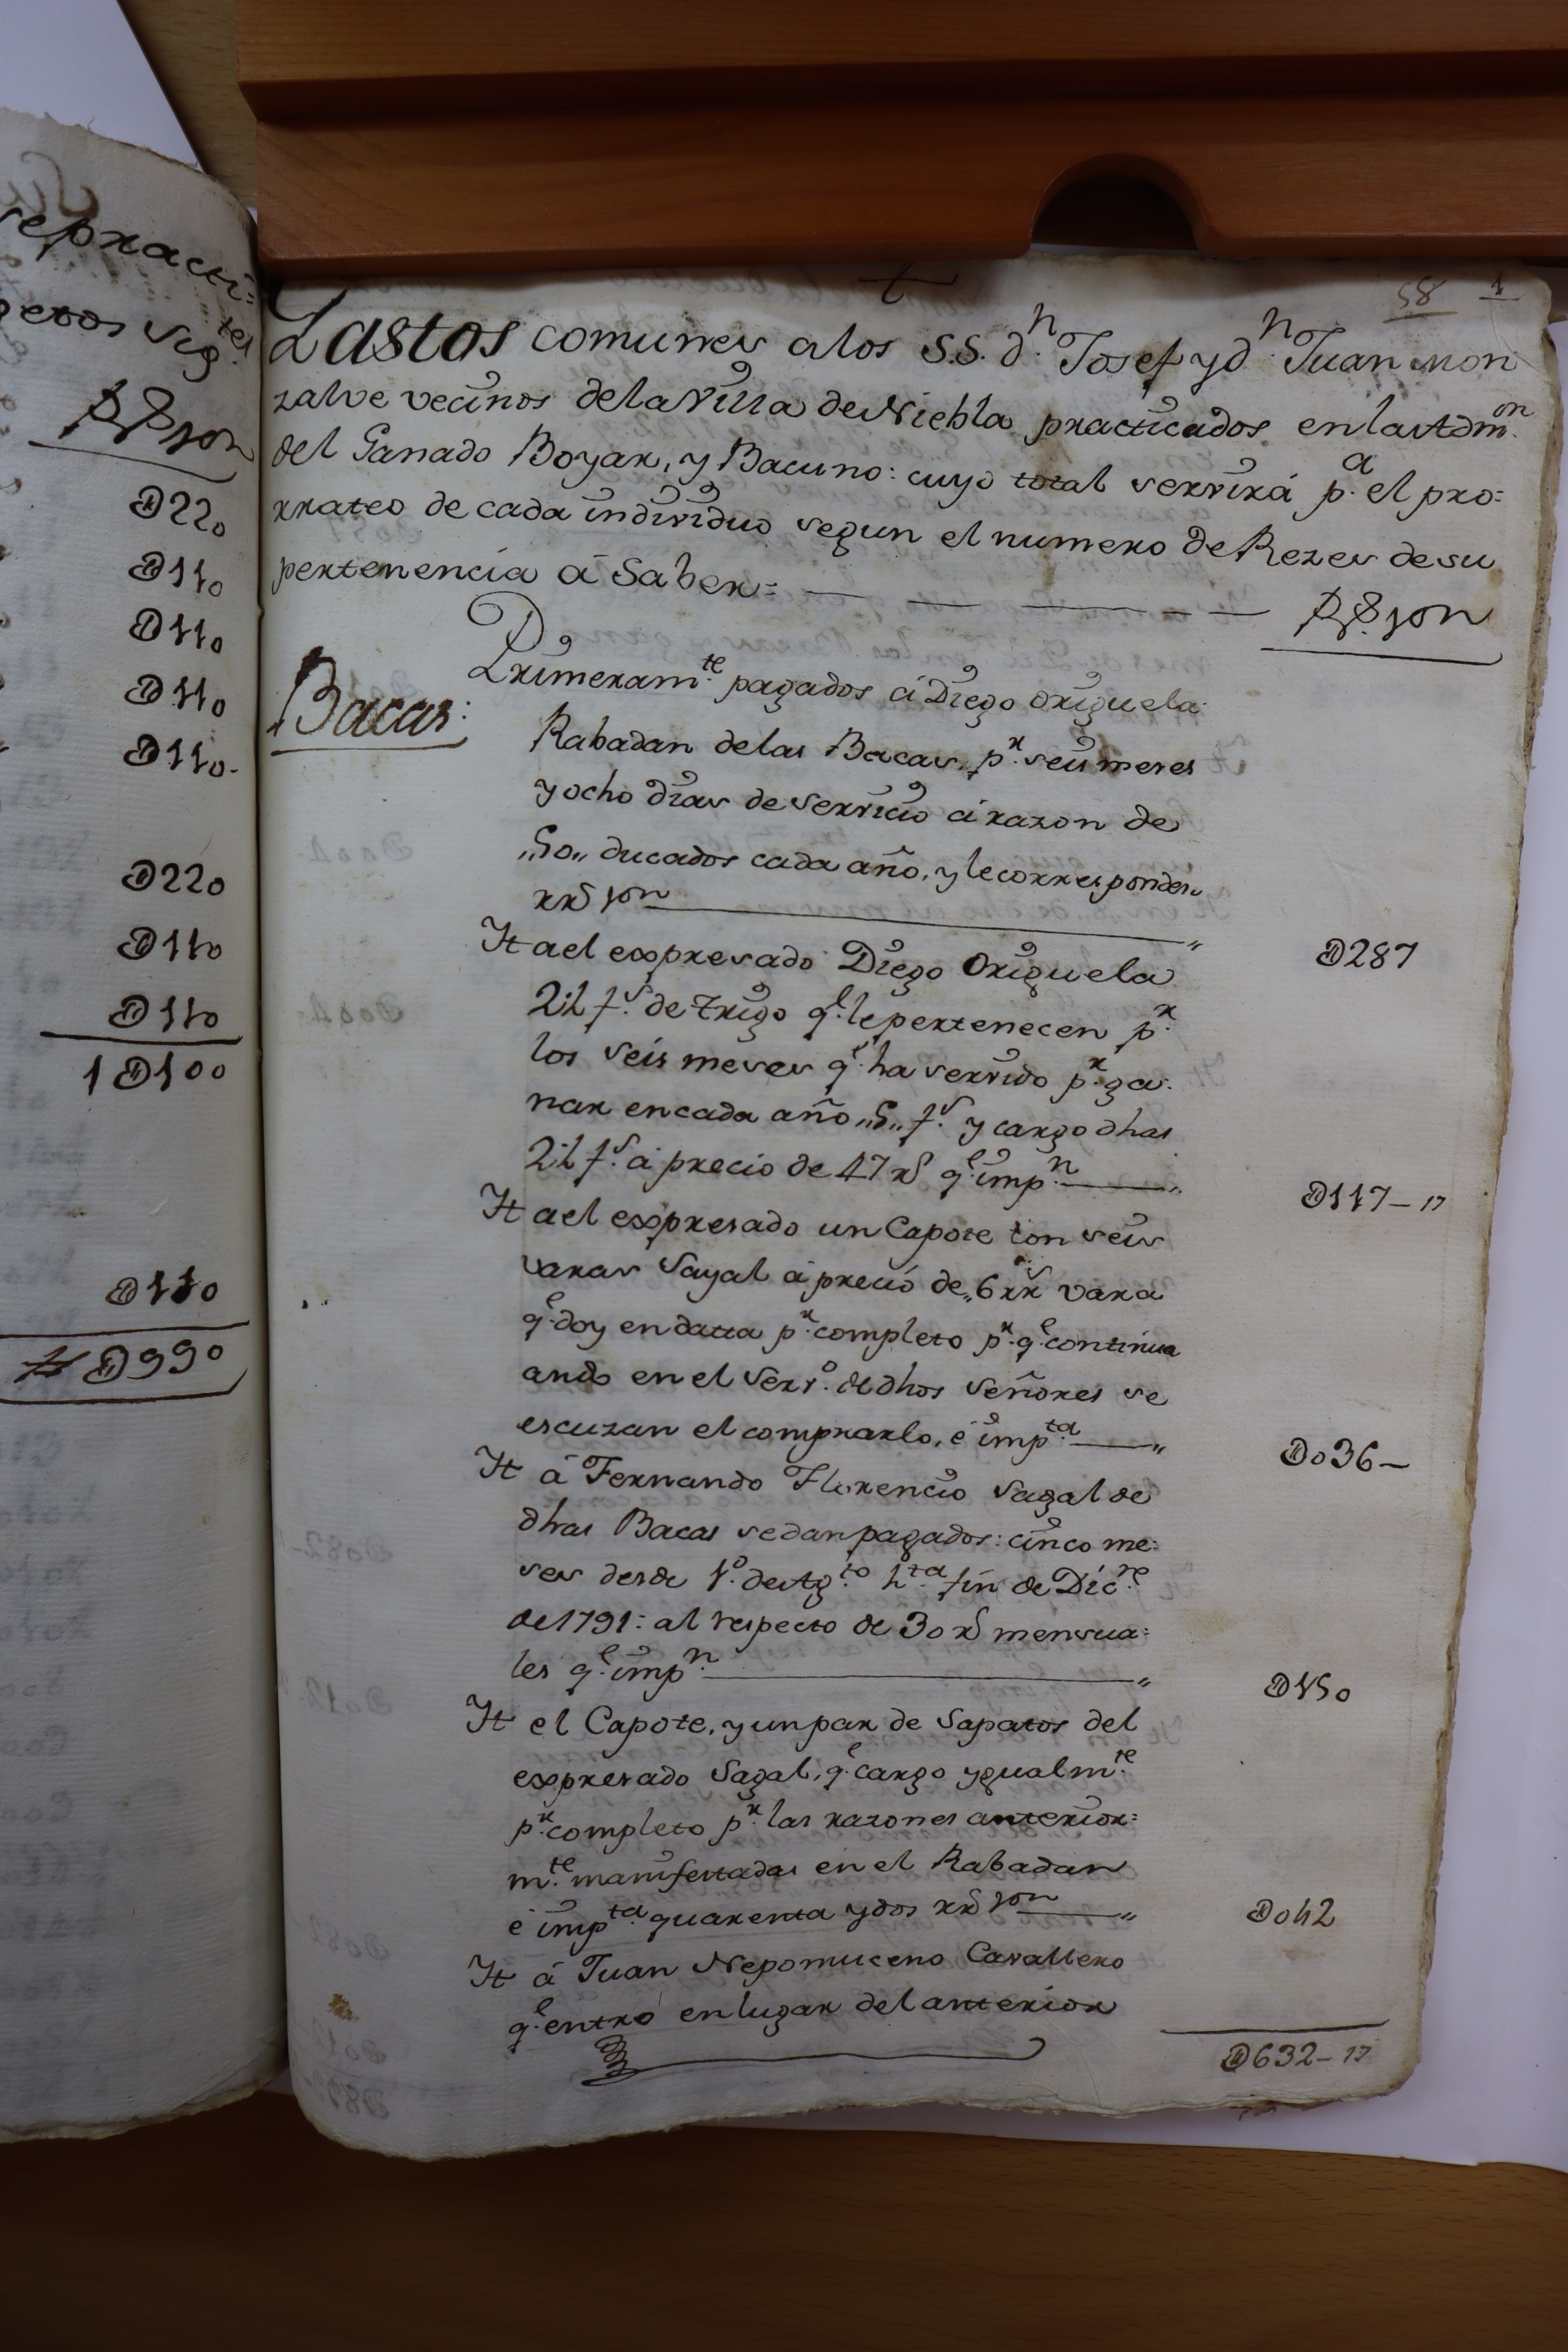 sepracti=
getos sig.tes
RRs von
D220
D110
D110
D110
D110.
D220
D110
D110
1D100
D110
D990
58 1
Gastos comunes a los S.S. d.n Josef y d.n Juan Mon
zalve vecinos dela Villa de Niebla practicados en la Adm.on
del Ganado Boyar, y Bacuno: cuyo total servirá p.a el pro=
rrateo de cada individuo segun el numero de Rezes de su
pertenencia á Saber=
RRs von
Bacas:
Primeram.te pagados á Diego Origuela
Rabadan delas Bacas, p.r seis meses
y ocho dias de servicio á razon de
,,50,, ducados cada año, y le corresponden
rrs von
D287
It ael expresado Diego Origuela
2½ f.s de trigo q.e le pertenecen p.r
los seis meses q.e ha servido p.r ga=
nar en cada año ,,5,, f.s y cargo dhas
2½ f.s á precio de 47 rs q.e imp.n
D117-17
It ael expresado un Capote con seis
varas Sayal á precio de ,,6 rrs vara
q.e doy en data p.r completo p.r q.e continua
ando en el serv.o de dhos Señores se
escuzan el comprarlo, é imp.ta
D036-
It á Fernando Florencio Sagal de
dhas Bacas se dan pagados: cinco me=
ses desde 1.o de Ag.to h.ta fin de Dic.re
de 1791: al respecto de 30 rs mensua=
les q.e imp.n
D150
It el Capote, y un par de Sapatos del
expresado Sagal, q.e cargo ygualm.te
p.r completo p.r las razones anterior=
m.te manifestadas en el Rabadan
é imp.ta quarenta y dos rrs von
D042
It á Juan Nepomuceno Cavallero
q.e entró en lugar del anterior
D632-17